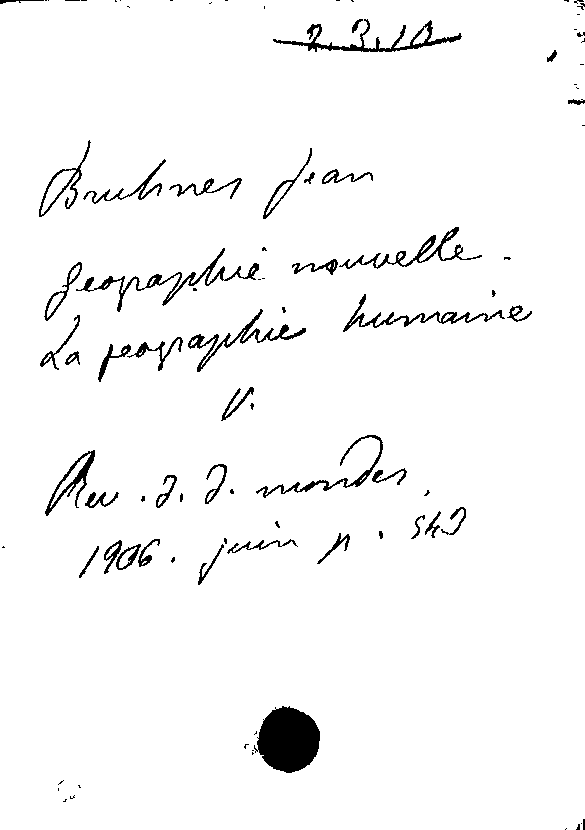 2.3.10
Bruhnes Jean
Geographie nouvelle.
La geographie humaine
V.
Rev. d. d. mondes,
1906. juin p. 543